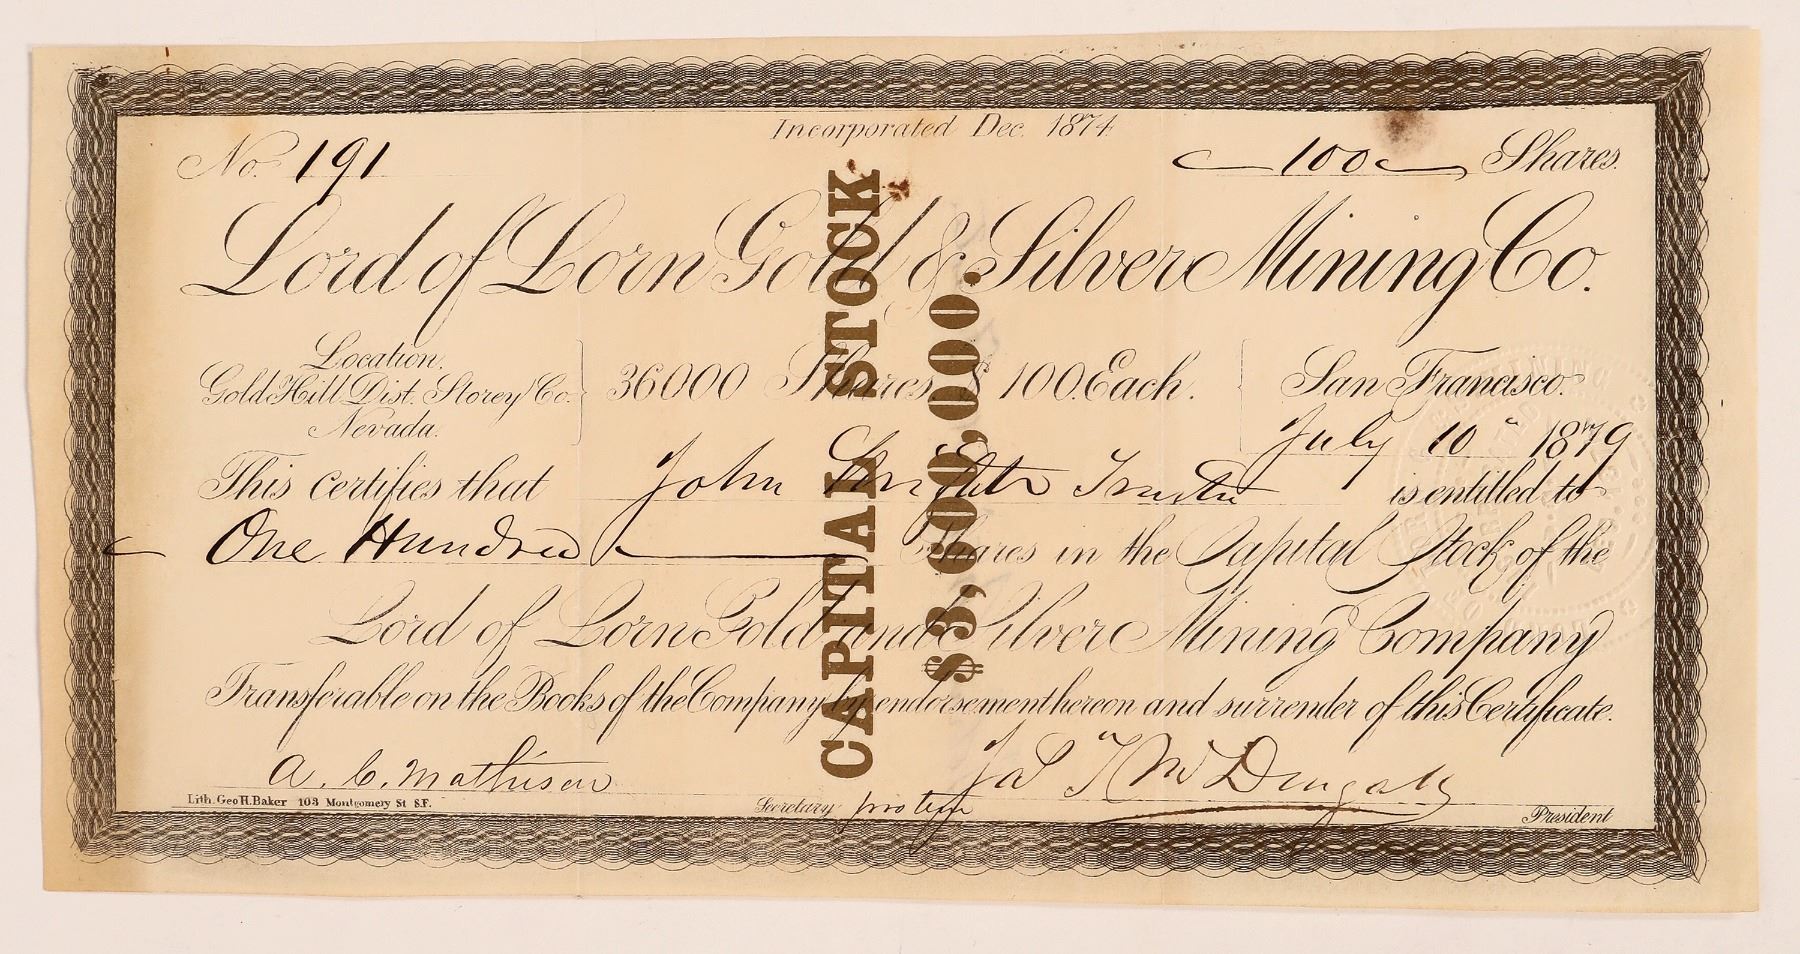 Incorporated Dec. 1874
No. 191
100 Shares.
Lord of Lorn Gold & Silver Mining Co.
Location.
Gold Hill Dist. Storey Co.
Nevada.
36000 Shares $100 Each.
San Francisco.
July 10" 1879
This certifies that John Trustee is entitled to
One Hundred Shares in the Capital Stock of the
Lord of Lorn Gold and Silver Mining Company
Transferable on the Books of the Company by endorsement hereon and surrender of this Certificate.
A. C. Mathison
Secretary pro tem
McDougall
President
Lith. Geo H. Baker 103 Montgomery St S.F.
CAPITAL STOCK
$3,600,000.